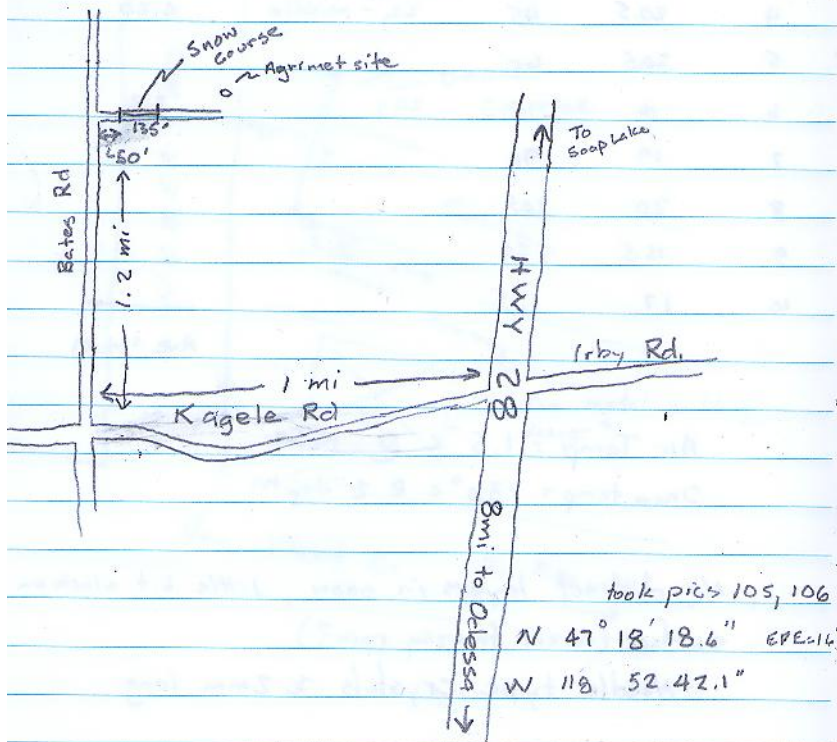 Snow
Course
Agrimet site
135'
50'
To
Soap Lake
Bates Rd
1.2 mi
HWY
28
Irby Rd.
1 mi
Kagele Rd
8mi to Odessa
took pics 105, 106
N 47° 18' 18.6" EPE=16
W 118 52 42.1"